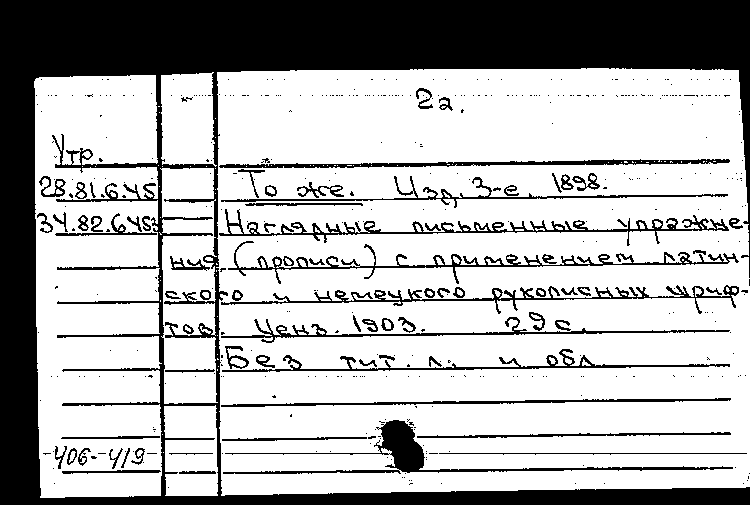 2а.
Утр.
28.81.6.45 То же. Изд. 3-е. 1898.
34.82.6.453 Наглядные письменные упражне-
ния (прописи) с применением латин-
ского и немецкого рукописных шриф-
тов. Ценз. 1903. 29 с.
Без тит. л. и обл
406-419